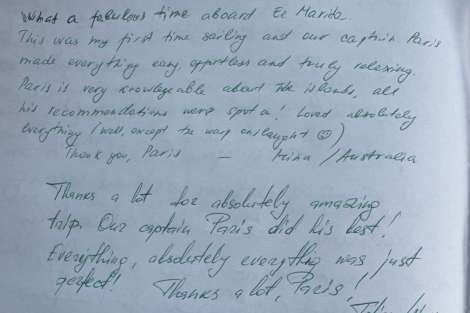 What a fabulous time aboard Ee Marita.
This was my first time sailing and our captain Paris
made everything easy, effortless and truly relaxing.
Paris is very knowledgeable about the islands, all
his recommendations were spot on! Loved absolutely
everything (well, except the wasp onslaught ☺)
Thank you, Paris — /Australia
Thanks a lot for absolutely amazing
trip. Our captain Paris did his best!
Everything, absolutely everything was just
perfect! Thanks a lot, Paris!